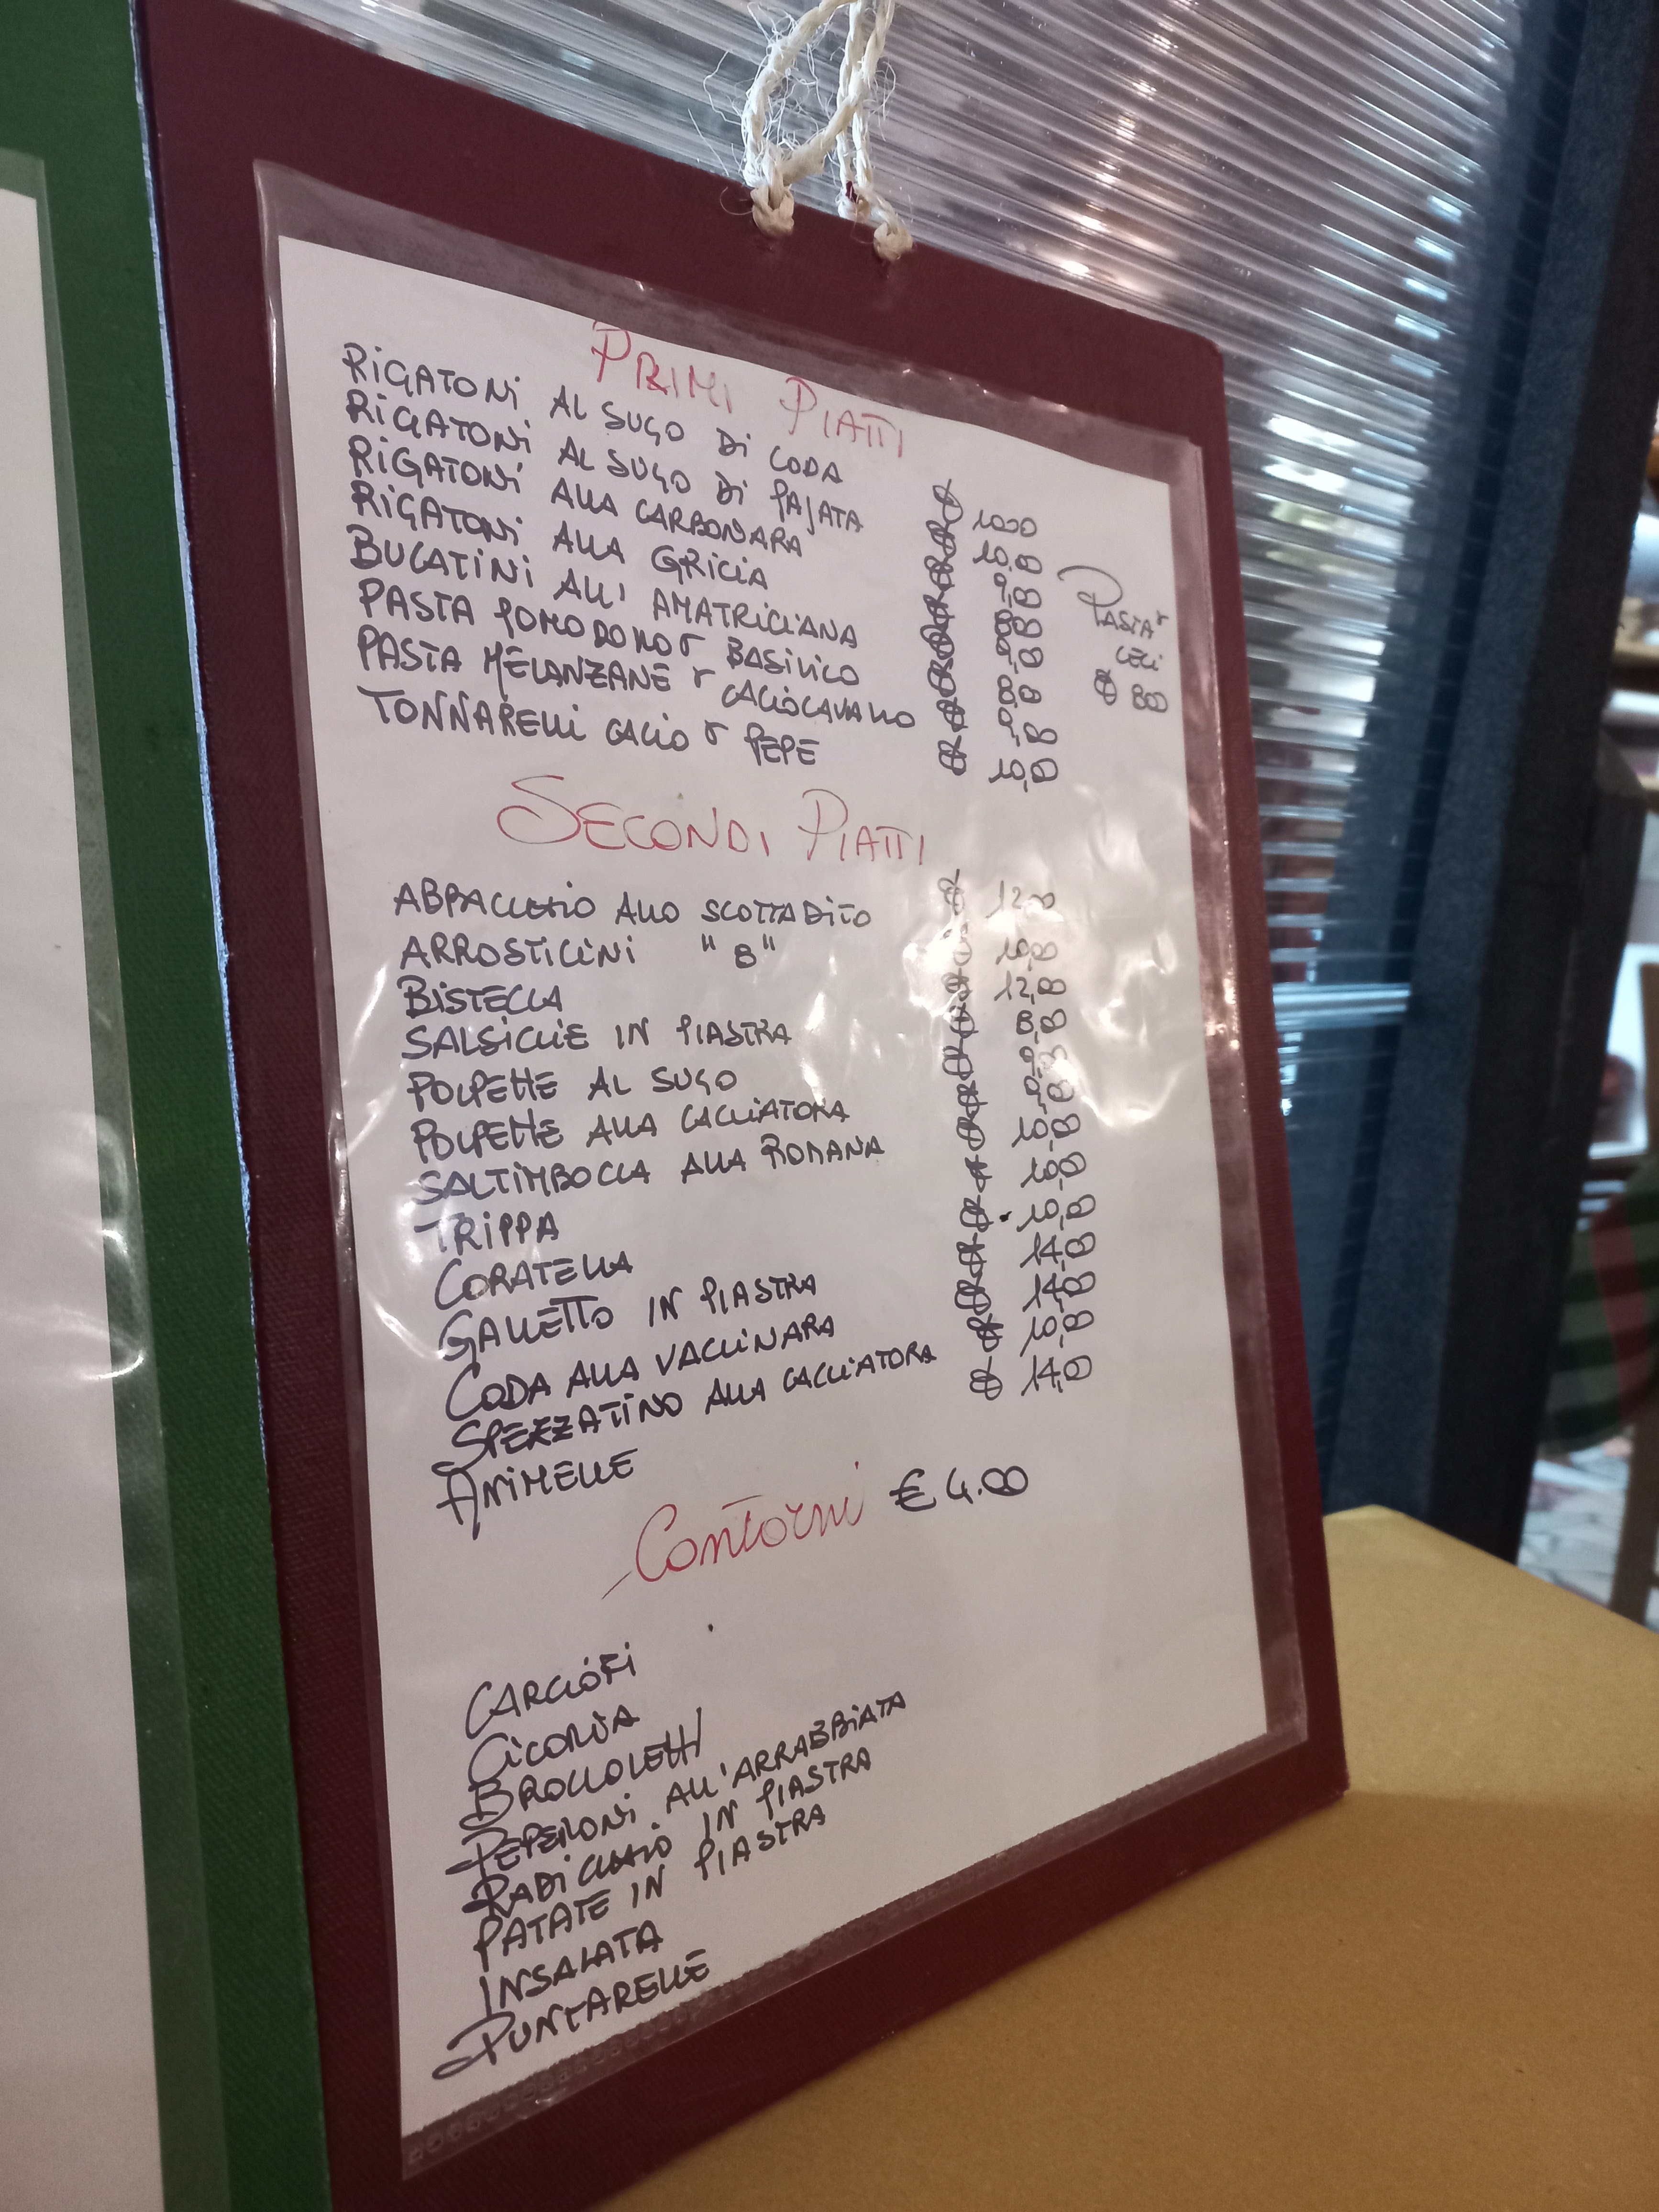 PRIMI PIATTI
RIGATONI AL SUGO DI CODA € 10,00
RIGATONI AL SUGO DI PAJATA € 10,00
RIGATONI ALLA CARBONARA € 9,00
RIGATONI ALLA GRICIA € 8,00
BUCATINI ALL' AMATRICIANA € 9,00
PASTA POMODORO E BASILICO € 8,00
PASTA MELANZANE E CACIOCAVALLO € 9,00
TONNARELLI CACIO E PEPE € 10,00
PASTA E
CECI
€ 800
SECONDI PIATTI
ABBACCHIO ALLO SCOTTADITO € 12,00
ARROSTICINI "8" € 10,00
BISTECCA € 12,00
SALSICCIE IN PIASTRA € 8,00
POLPETTE AL SUGO € 9,00
POLPETTE ALLA CACCIATORA € 9,00
SALTIMBOCCA ALLA ROMANA € 10,00
TRIPPA € 10,00
CORATELLA € 10,00
GALLETTO IN PIASTRA € 14,00
CODA ALLA VACCINARA € 14,00
SPEZZATINO ALLA CACCIATORA € 10,00
ANIMELLE € 14,00
Contorni € 4.00
CARCIOFI
CICORIA
BROCCOLETTI
PEPERONI ALL'ARRABBIATA
RADICCHIO IN PIASTRA
PATATE IN PIASTRA
INSALATA
PUNTARELLE